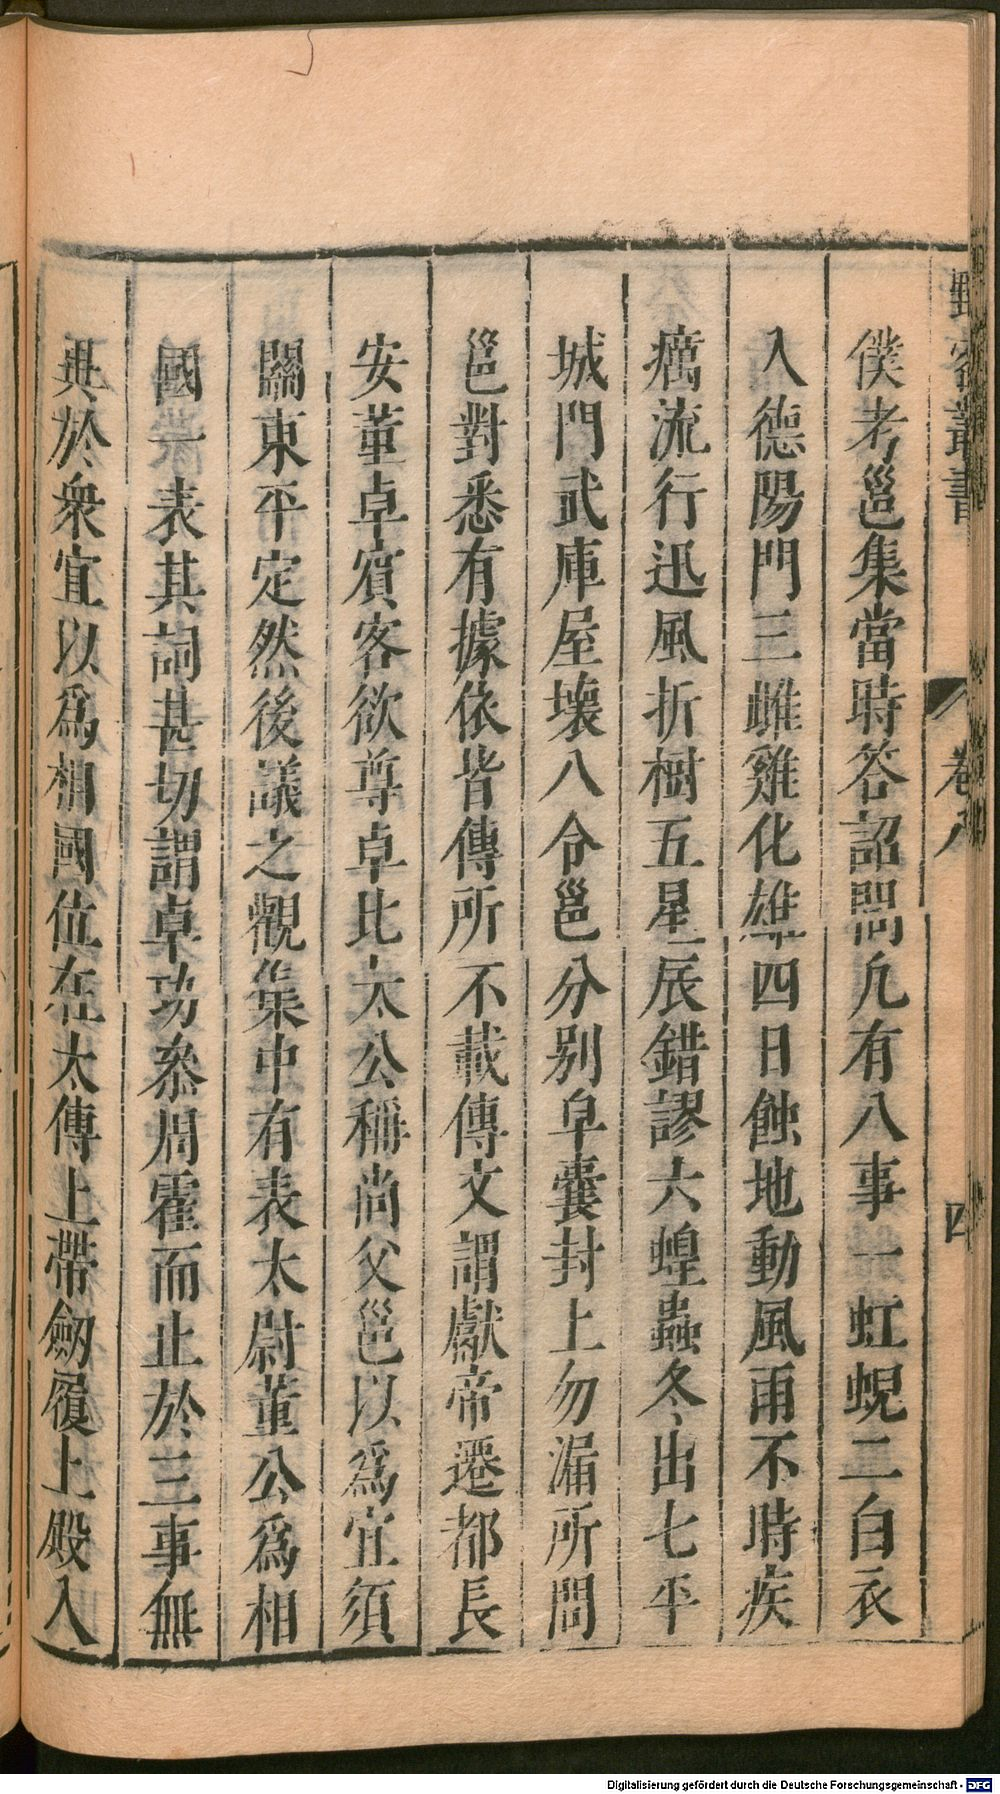 野客叢書 卷八 四
僕考邕集當時答詔問凡有八事一虹蜺二白衣
入德陽門三雌雞化雄四日蝕地動風雨不時疾
癘流行迅風折樹五星辰錯謬六蝗蟲冬出七平
城門武庫屋壞八令邕分别皁囊封上勿漏所問
邕對悉有據依皆傳所不載傳文謂獻帝遷都長
安董卓賓客欲尊卓比太公稱尚父邕以爲宜須
關東平定然後議之觀集中有表太尉董公爲相
國一表其詞甚切謂卓功叅周霍而止於三事無
異於衆宜以爲相國位在太傅上帶劒履上殿入
Digitalisierung gefördert durch die Deutsche Forschungsgemeinschaft - DFG